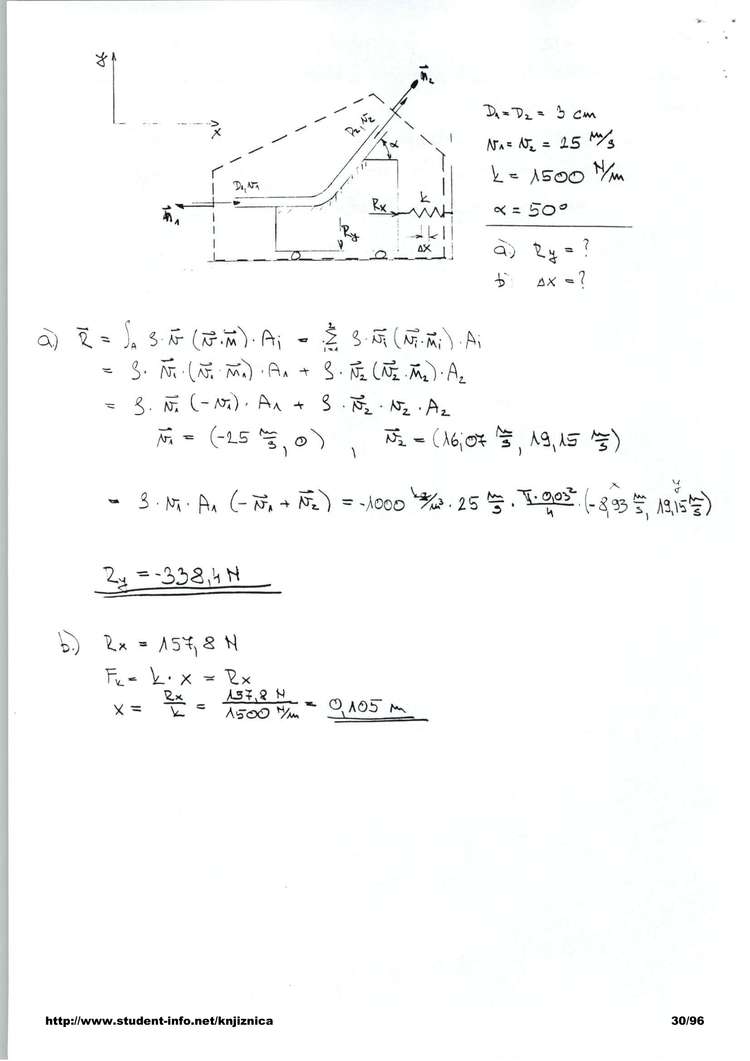 y
x
n⃗₂
D₂, v₂
α
D₁, v₁
n⃗₁
Rx
k
Ry
Δx
D₁ = D₂ = 3 cm
v₁ = v₂ = 25 m/s
k = 1500 N/m
α = 50°
a) Ry = ?
b) Δx = ?
a) R⃗ = ∫A ρ·v⃗ (v⃗·n⃗)·Ai = Σ²ᵢ₌₁ ρ·v⃗i (v⃗i·n⃗i)·Ai
= ρ·v⃗₁·(v⃗₁·n⃗₁)·A₁ + ρ·v⃗₂(v⃗₂·n⃗₂)·A₂
= ρ·v⃗₁(-v₁)·A₁ + ρ·v⃗₂·v₂·A₂
v⃗₁ = (-25 m/s, 0), v⃗₂ = (16,07 m/s, 19,15 m/s)
x y
= ρ·v₁·A₁ (-v⃗₁ + v⃗₂) = -1000 kg/m³ · 25 m/s · π·0,03²/4 · (-8,93 m/s, 19,15 m/s)
Ry = -338,4 N
b.) Rx = 157,8 N
Fk = k·x = Rx
x = Rx/k = 157,8 N/1500 N/m = 0,105 m
http://www.student-info.net/knjiznica 30/96